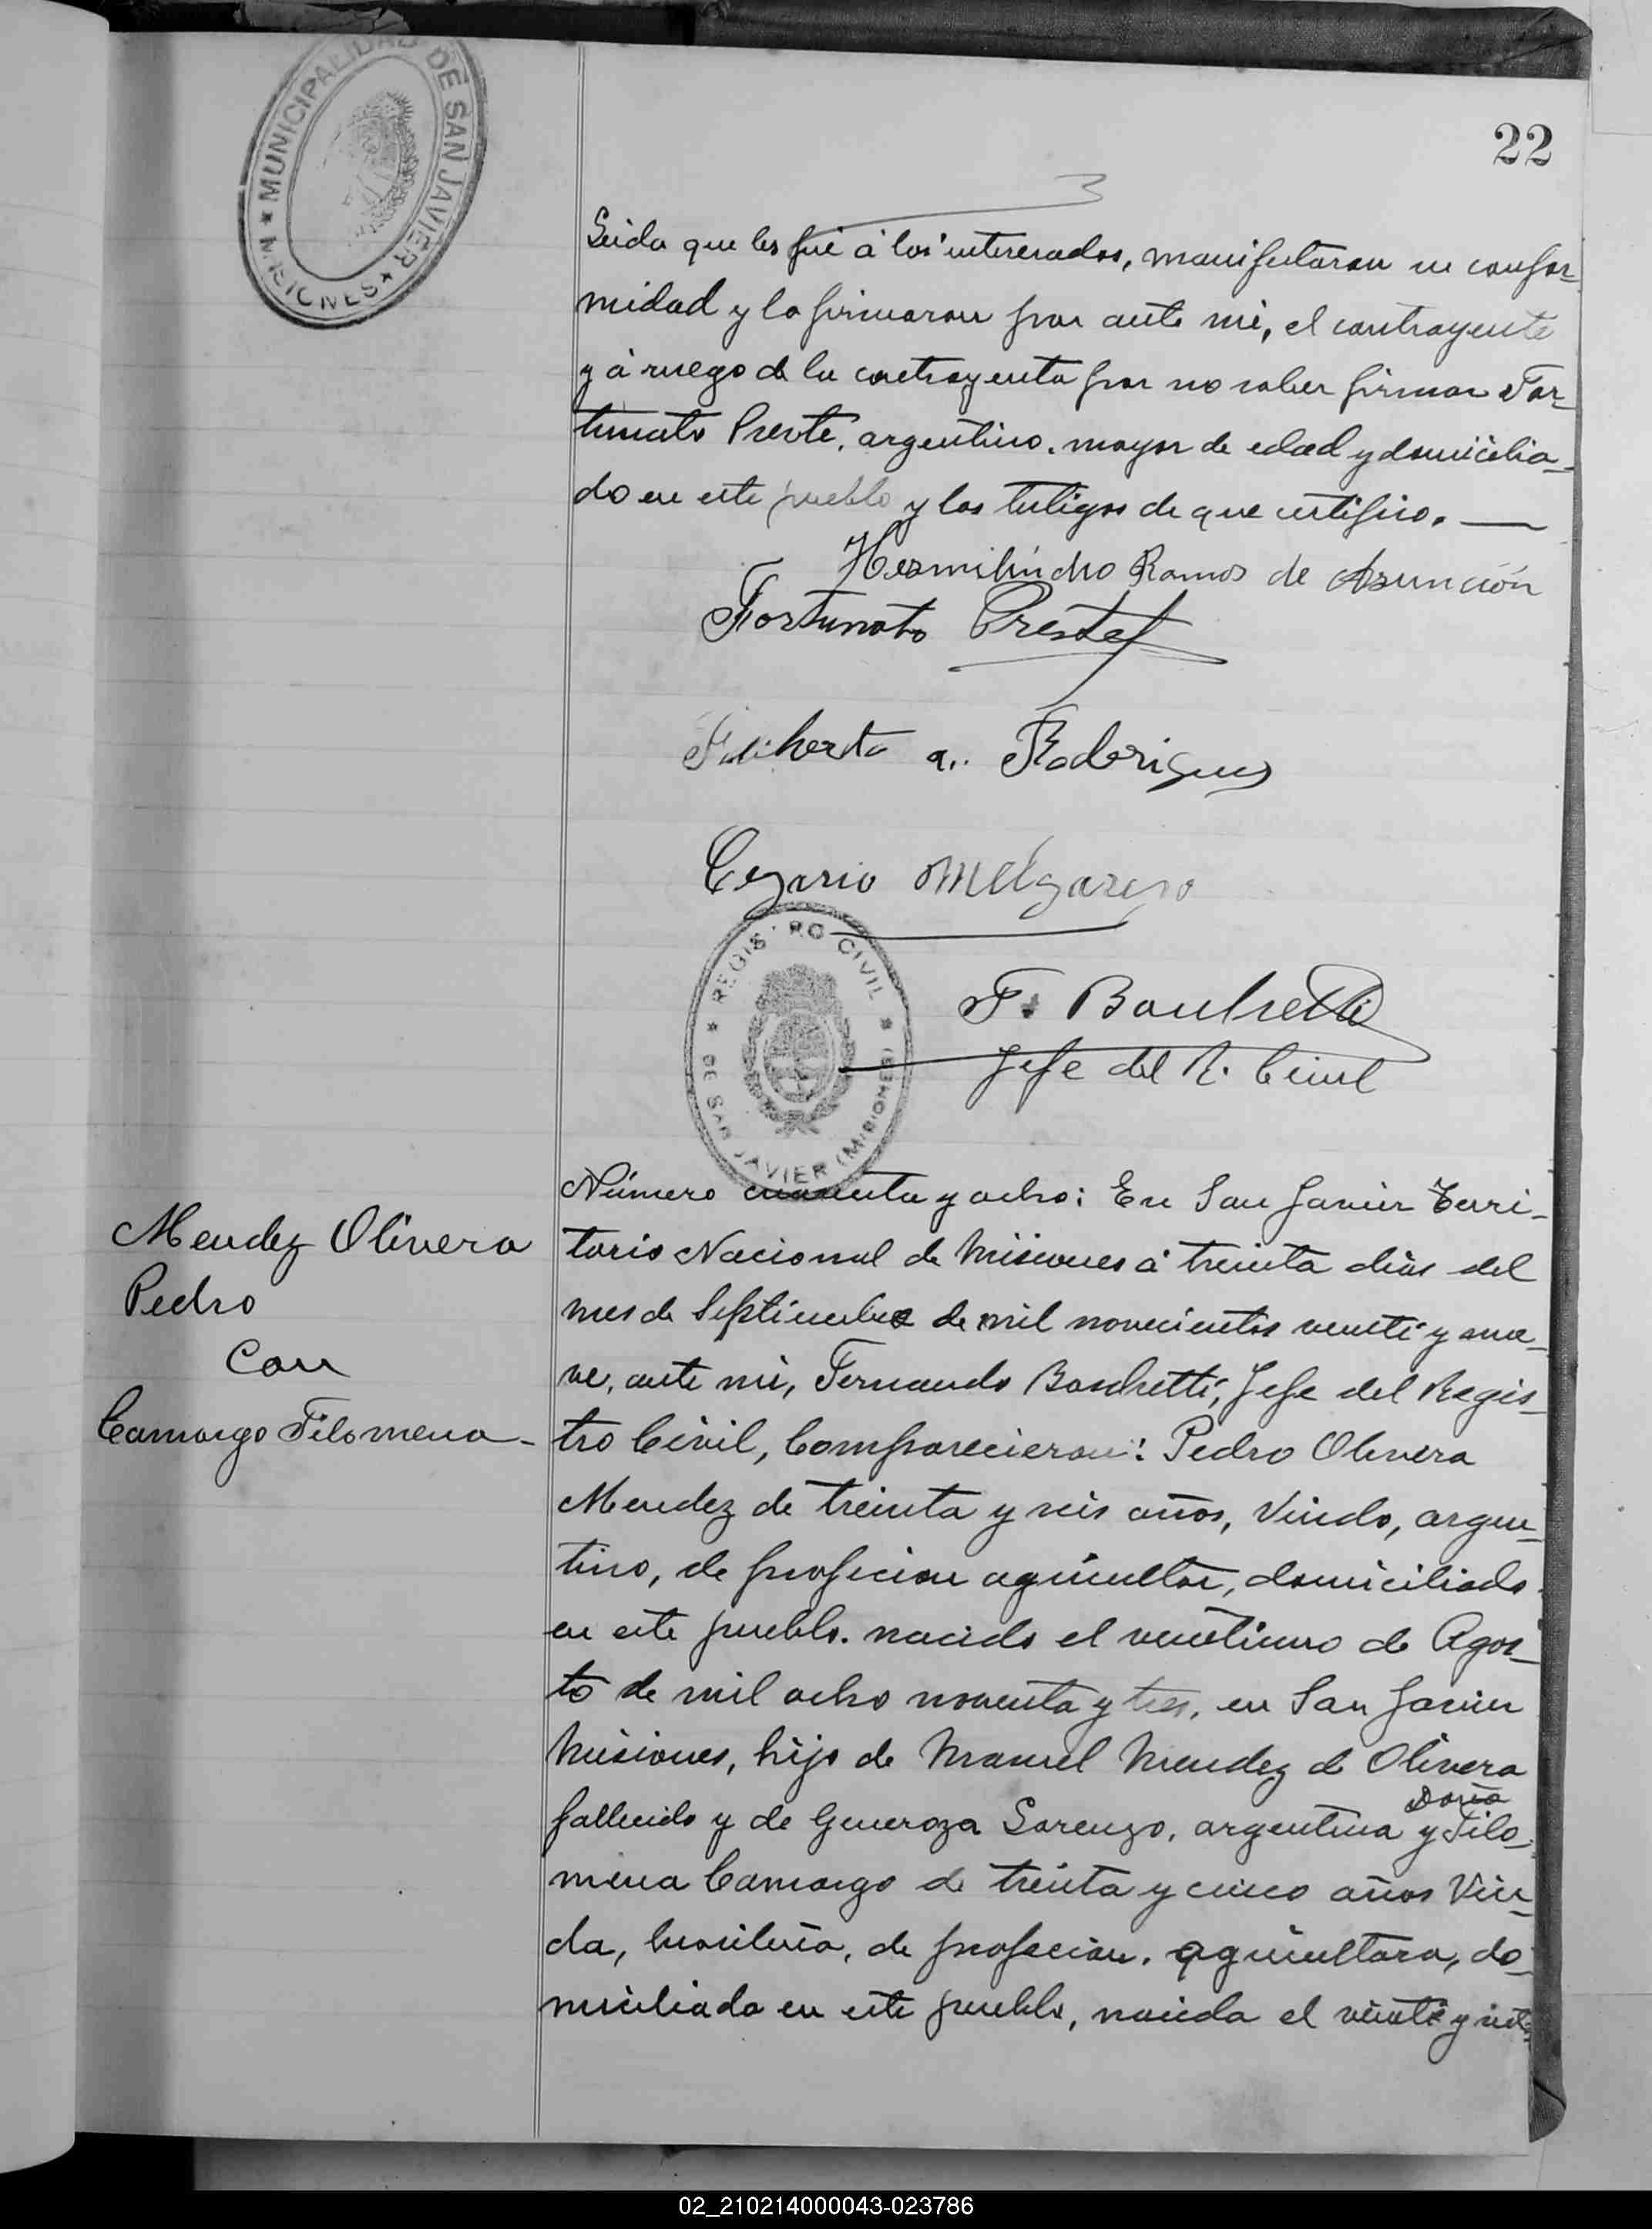 MUNICIPALIDAD DE SAN JAVIER
MISIONES
22
Leida que les fué á los interesados, manifestaron su confor-
midad y la firmaron por ante mi, el contrayente
y á ruego de la contrayenta por no saber firmar For-
tunato Preste, argentino, mayor de edad y domicilia-
do en este pueblo y los testigos de que certifico.
Hermilindro Ramos de Asunción
Fortunato Prestes
Filiberto a. Rodrigues
Cezario Melgarejo
REGISTRO CIVIL
DE SAN JAVIER (MISIONES)
F. Boschetti
Jefe del R. Civil
Mendez Olivera
Pedro
con
Camargo Filomena-
Número cuarenta y ocho: En San Javier Terri-
torio Nacional de Misiones á treinta dias del
mes de Septiembre de mil novecientos veinti y nue-
ve, ante mi, Fernando Boschetti, Jefe del Regis-
tro Civil, Comparecieron: Pedro Olivera
Mendez de treinta y seis años, Viudo, argen-
tino, de profecion agricultor, domiciliado
en este pueblo. nacido el veintiuno de Agos-
to de mil ocho noventa y tres, en San Javier
Misiones, hijo de Manuel Mendez de Olivera
fallecido y de Generoza Lorenzo, argentina y Doña Filo-
mena Camargo de treinta y cinco años Viu-
da, brasileña, de profecion, agricultora, do-
miciliada en este pueblo, nacida el veinti y siete
02_210214000043-023786